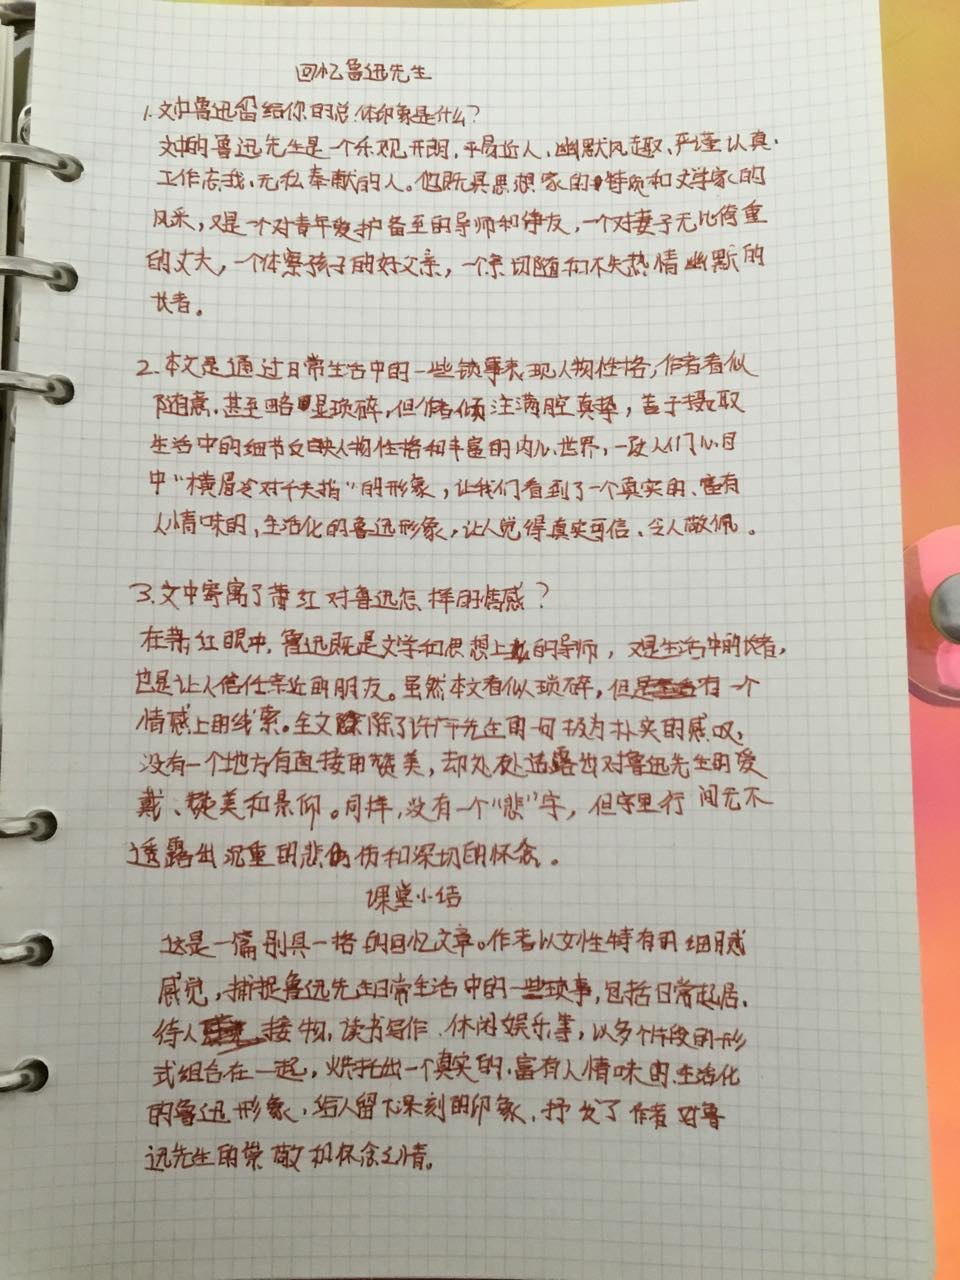 回忆鲁迅先生
1.文中鲁迅留给你的总体印象是什么?
文中的鲁迅先生是一个乐观开朗,平易近人,幽默风趣、严谨认真.
工作忘我、无私奉献的人。他既具思想家的特质和文学家的
风采,又是一个对青年爱护备至的导师和诤友,一个对妻子无比倚重
的丈夫,一个体察孩子的好父亲,一个亲切随和不失热情幽默的
长者。
2.本文是通过日常生活中的一些锁事表现人物性格,作者看似
随意.甚至略显琐碎,但作者倾注满腔真挚,善于摄取
生活中的细节反映人物性格和丰富的内心世界,一改人们心目
中“横眉冷对千夫指”的形象,让我们看到了一个真实的、富有
人情味的、生活化的鲁迅形象,让人觉得真实可信、令人敬佩。
3.文中寄寓了萧红对鲁迅怎样的情感?
在萧红眼中,鲁迅既是文学和思想上的导师,又是生活中的长者,
也是让人信任亲近的朋友。虽然本文看似琐碎,但是有一个
情感上的线索。全文除了许广平先生的一句极为朴实的感叹,
没有一个地方有直接用赞美,却处处透露出对鲁迅先生的爱
戴、赞美和景仰。同样,没有一个“悲”字,但字里行间无不
透露出沉重的悲伤和深切的怀念。
课堂小结
这是一篇别具一格的回忆文章。作者以女性特有的细腻
感觉,捕捉鲁迅先生日常生活中的一些琐事,包括日常起居、
待人接物,读书写作、休闲娱乐等,以多个片段的形
式组合在一起,烘托出一个真实的、富有人情味的、生活化
的鲁迅形象,给人留下深刻的印象,抒发了作者对鲁
迅先生的崇敬和怀念之情。